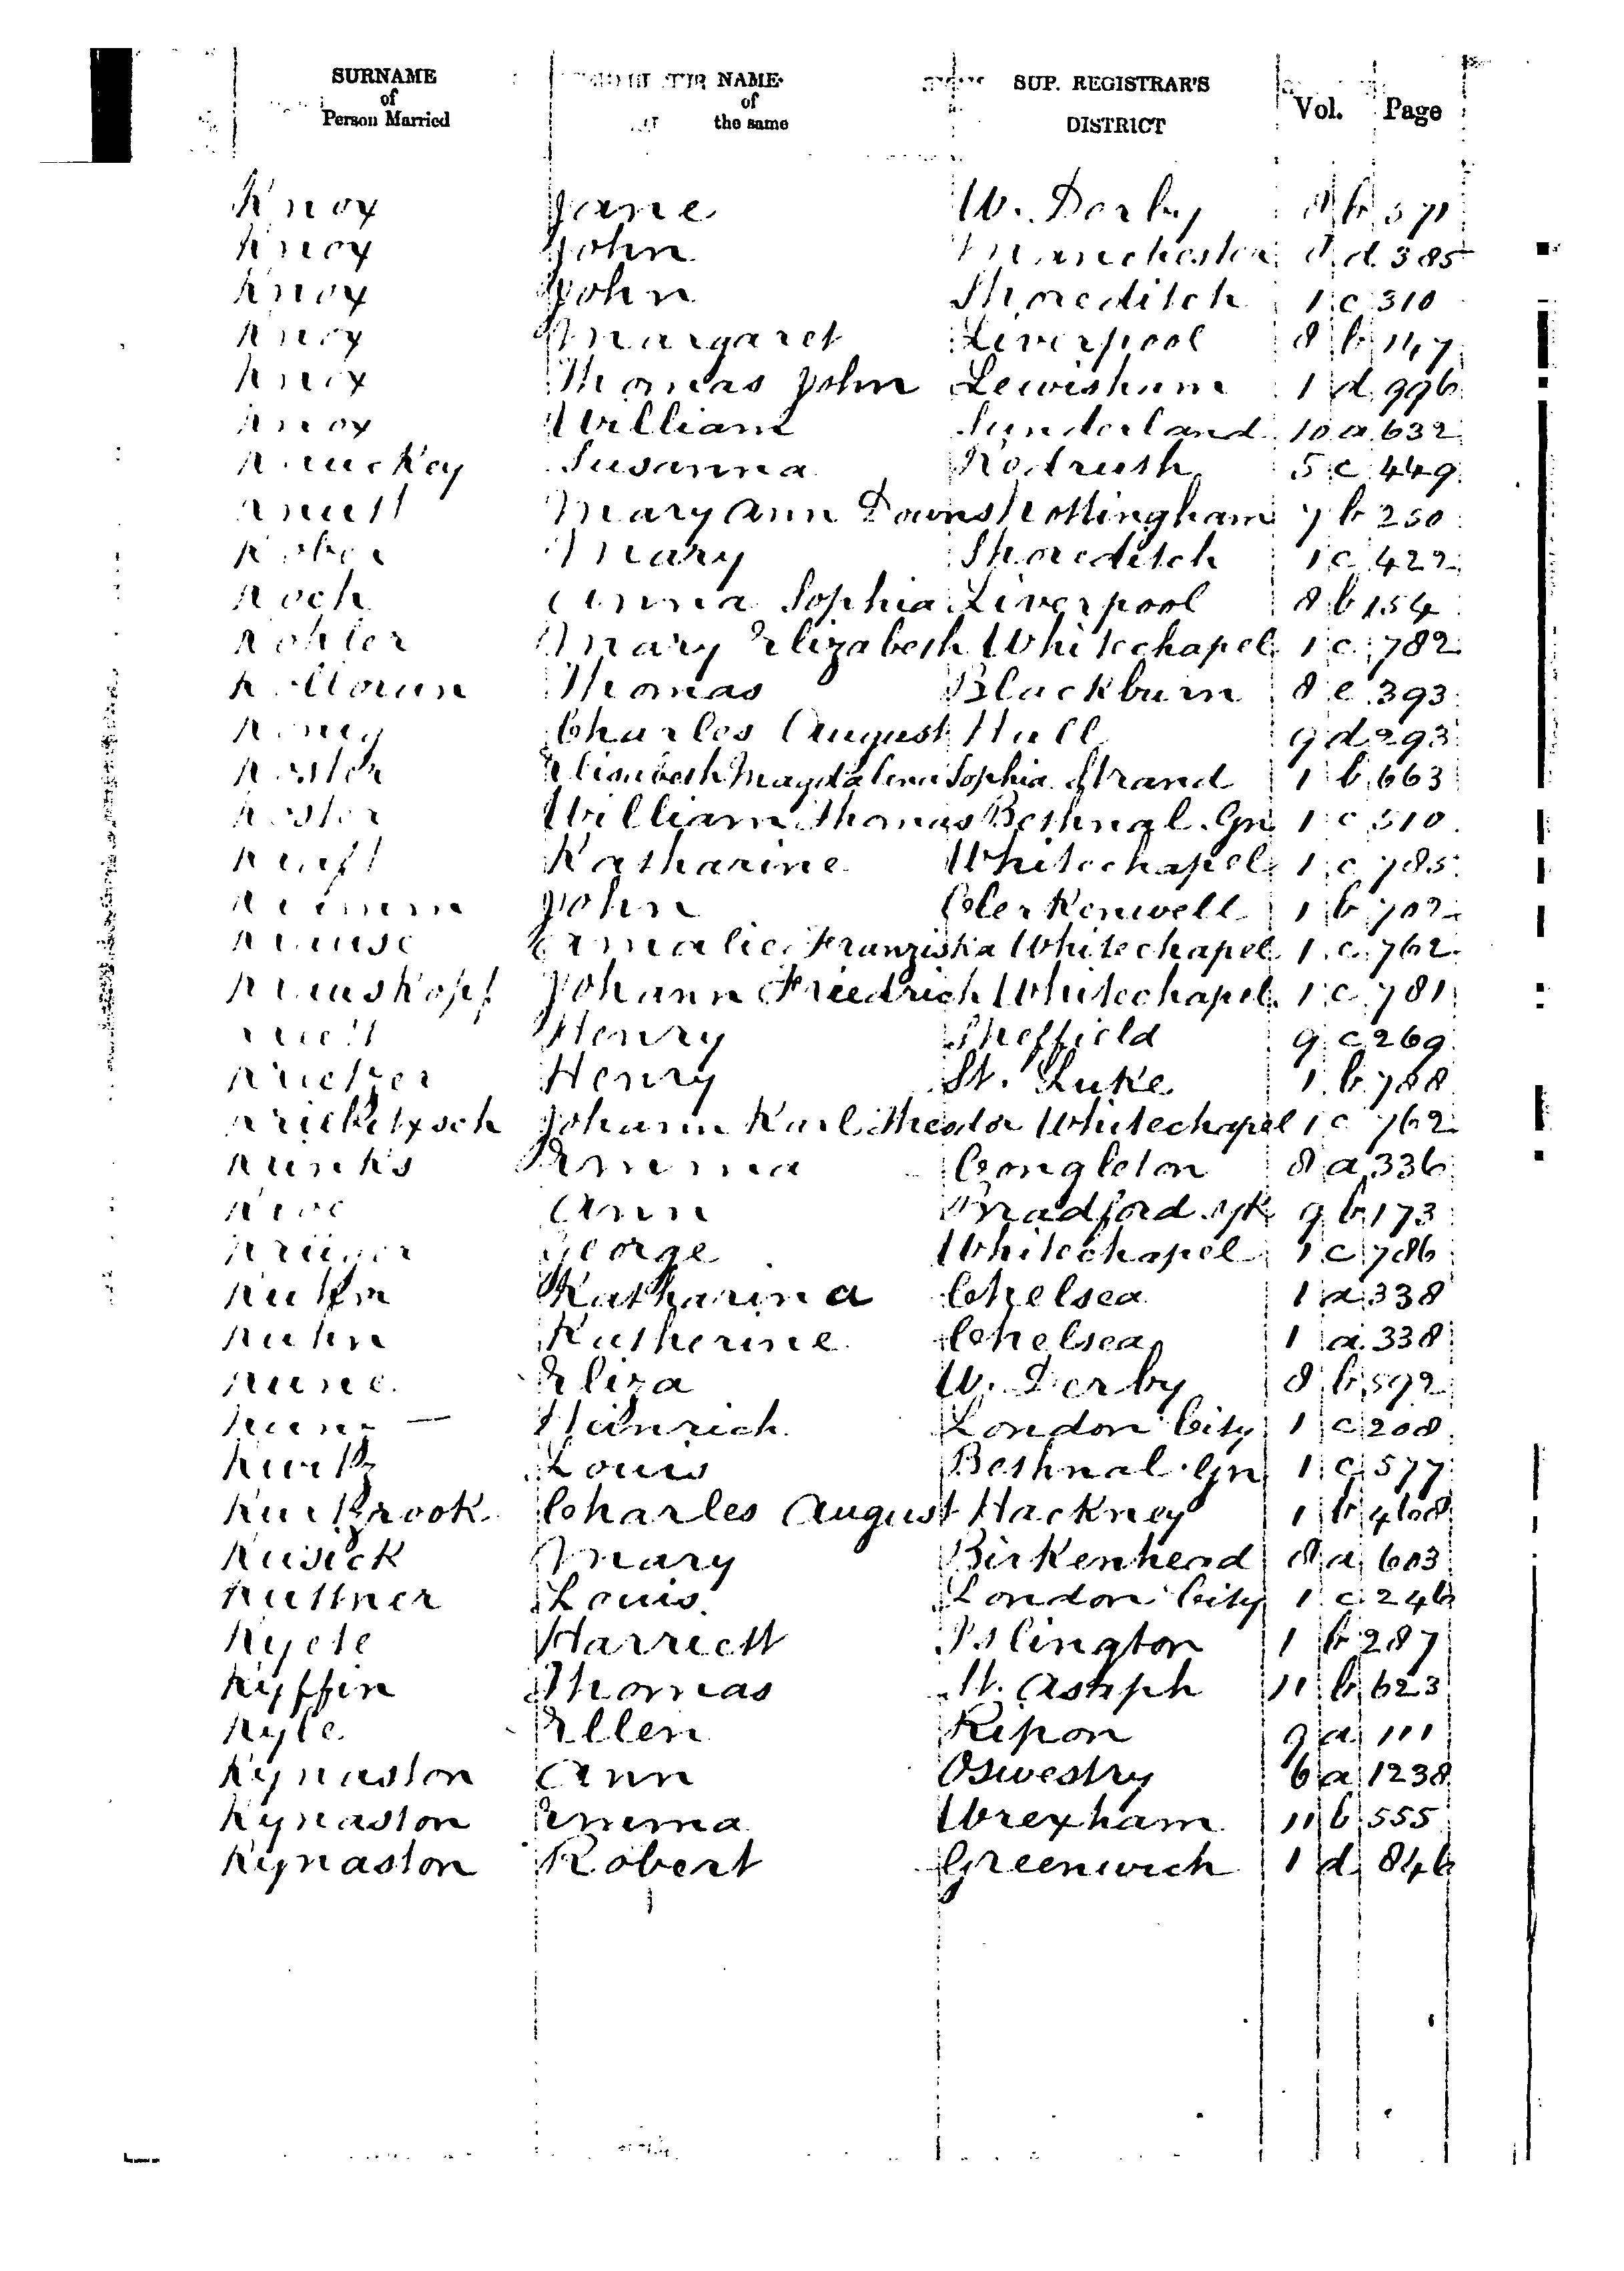 SURNAME of Person Married NAME of the same SUP. REGISTRAR'S DISTRICT Vol. Page
Knox Jane W. Derby 8 b 571
Knox John Manchester 8 d 385
Knox John Shoreditch 1 c 310
Knox Margaret Liverpool 8 b 147
Knox Thomas John Lewisham 1 d 996
Knox William Sunderland 10 a 632
Knuckey Susanna Redruth 5 c 449
Knutt Mary Ann Downs Nottingham 7 b 250
Mary Shoreditch 1 c 422
Koch Anna Sophia Liverpool 8 b 154
Kohler Mary Elizabeth Whitechapel 1 c 782
Thomas Blackburn 8 e 393
Charles August Hull 9 d 293
Koster Elisabeth Magdalena Sophia Strand 1 b 663
Koster William Thomas Bethnal Gn 1 c 510
Katharine Whitechapel 1 c 785
John Clerkenwell 1 b 702
Krause Amalie Franziska Whitechapel 1 c 762
Krauskopf Johann Friedrich Whitechapel 1 c 781
Henry Sheffield 9 c 269
Henry St. Luke 1 b 788
Johann Karl Theodor Whitechapel 1 c 762
Krinks Emma Congleton 8 a 336
Ann Bradford Yk 9 b 173
George Whitechapel 1 c 786
Kuhn Katharina Chelsea 1 a 338
Kuhn Katherine Chelsea 1 a 338
Eliza W. Derby 8 b 592
Heinrich London City 1 c 208
Kurtz Louis Bethnal Gn 1 c 577
Charles August Hackney 1 b 468
Kusick Mary Birkenhead 8 a 603
Kuttner Louis London City 1 c 246
Kyete Harriett Islington 1 b 287
Kyffin Thomas St. Asaph 11 b 623
Kyle Ellen Ripon 9 a 111
Kynaston Ann Oswestry 6 a 1238
Kynaston Emma Wrexham 11 b 555
Kynaston Robert Greenwich 1 d 846